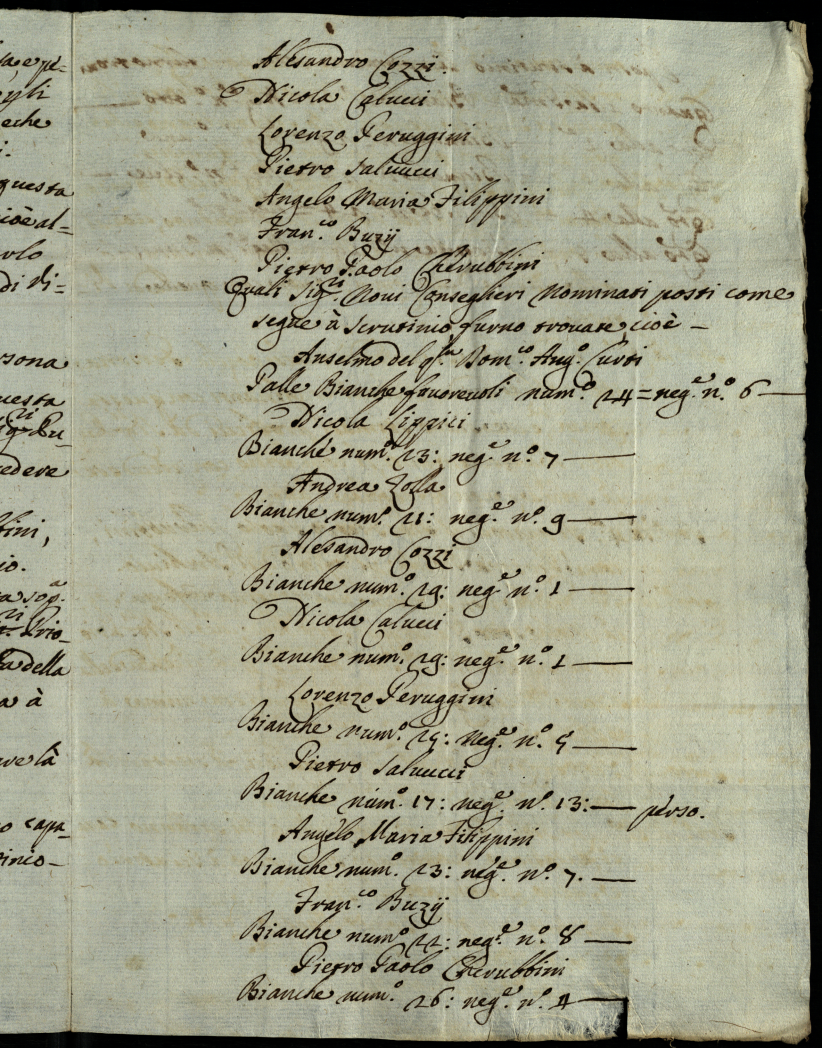 questa
cioè al=
di di=
sona
uesta
vedere
tini,
io.
della
a à
o capa-
Alesandro Cozzi
Nicola Calucci
Lorenzo Peruggini
Pietro Saluucci
Angelo Maria Filippini
Fran.co Buzij
Pietro Paolo Cherubbini
Quali Sig.ri Noui Conseglieri Nominati posti come
segue à scrutinio furno trouate cioè –
Anselmo del q.m Dom.co Ang.o Curti
Palle Bianche fauoreuoli num.o 24 = neg.e n.o 6 —
Nicola Lippici
Bianche num.o 23: neg.e n.o 7 —
Andrea Zolla
Bianche num.o 21: neg.e n.o 9 —
Alesandro Cozzi
Bianche num.o 29: neg.e n.o 1 —
Nicola Calucci
Bianche num.o 29: neg.e n.o 1 —
Lorenzo Peruggini
Bianche num.o 25: neg.e n.o 5 —
Pietro Saluucci
Bianche num.o 17: neg.e n.o 13: — perso.
Angelo Maria Filippini
Bianche num.o 23: neg.e n.o 7. —
Fran.co Buzij
Bianche num.o 22: neg.e n.o 8 —
Pietro Paolo Cherubbini
Bianche num.o 26: neg.e n.o 4 —